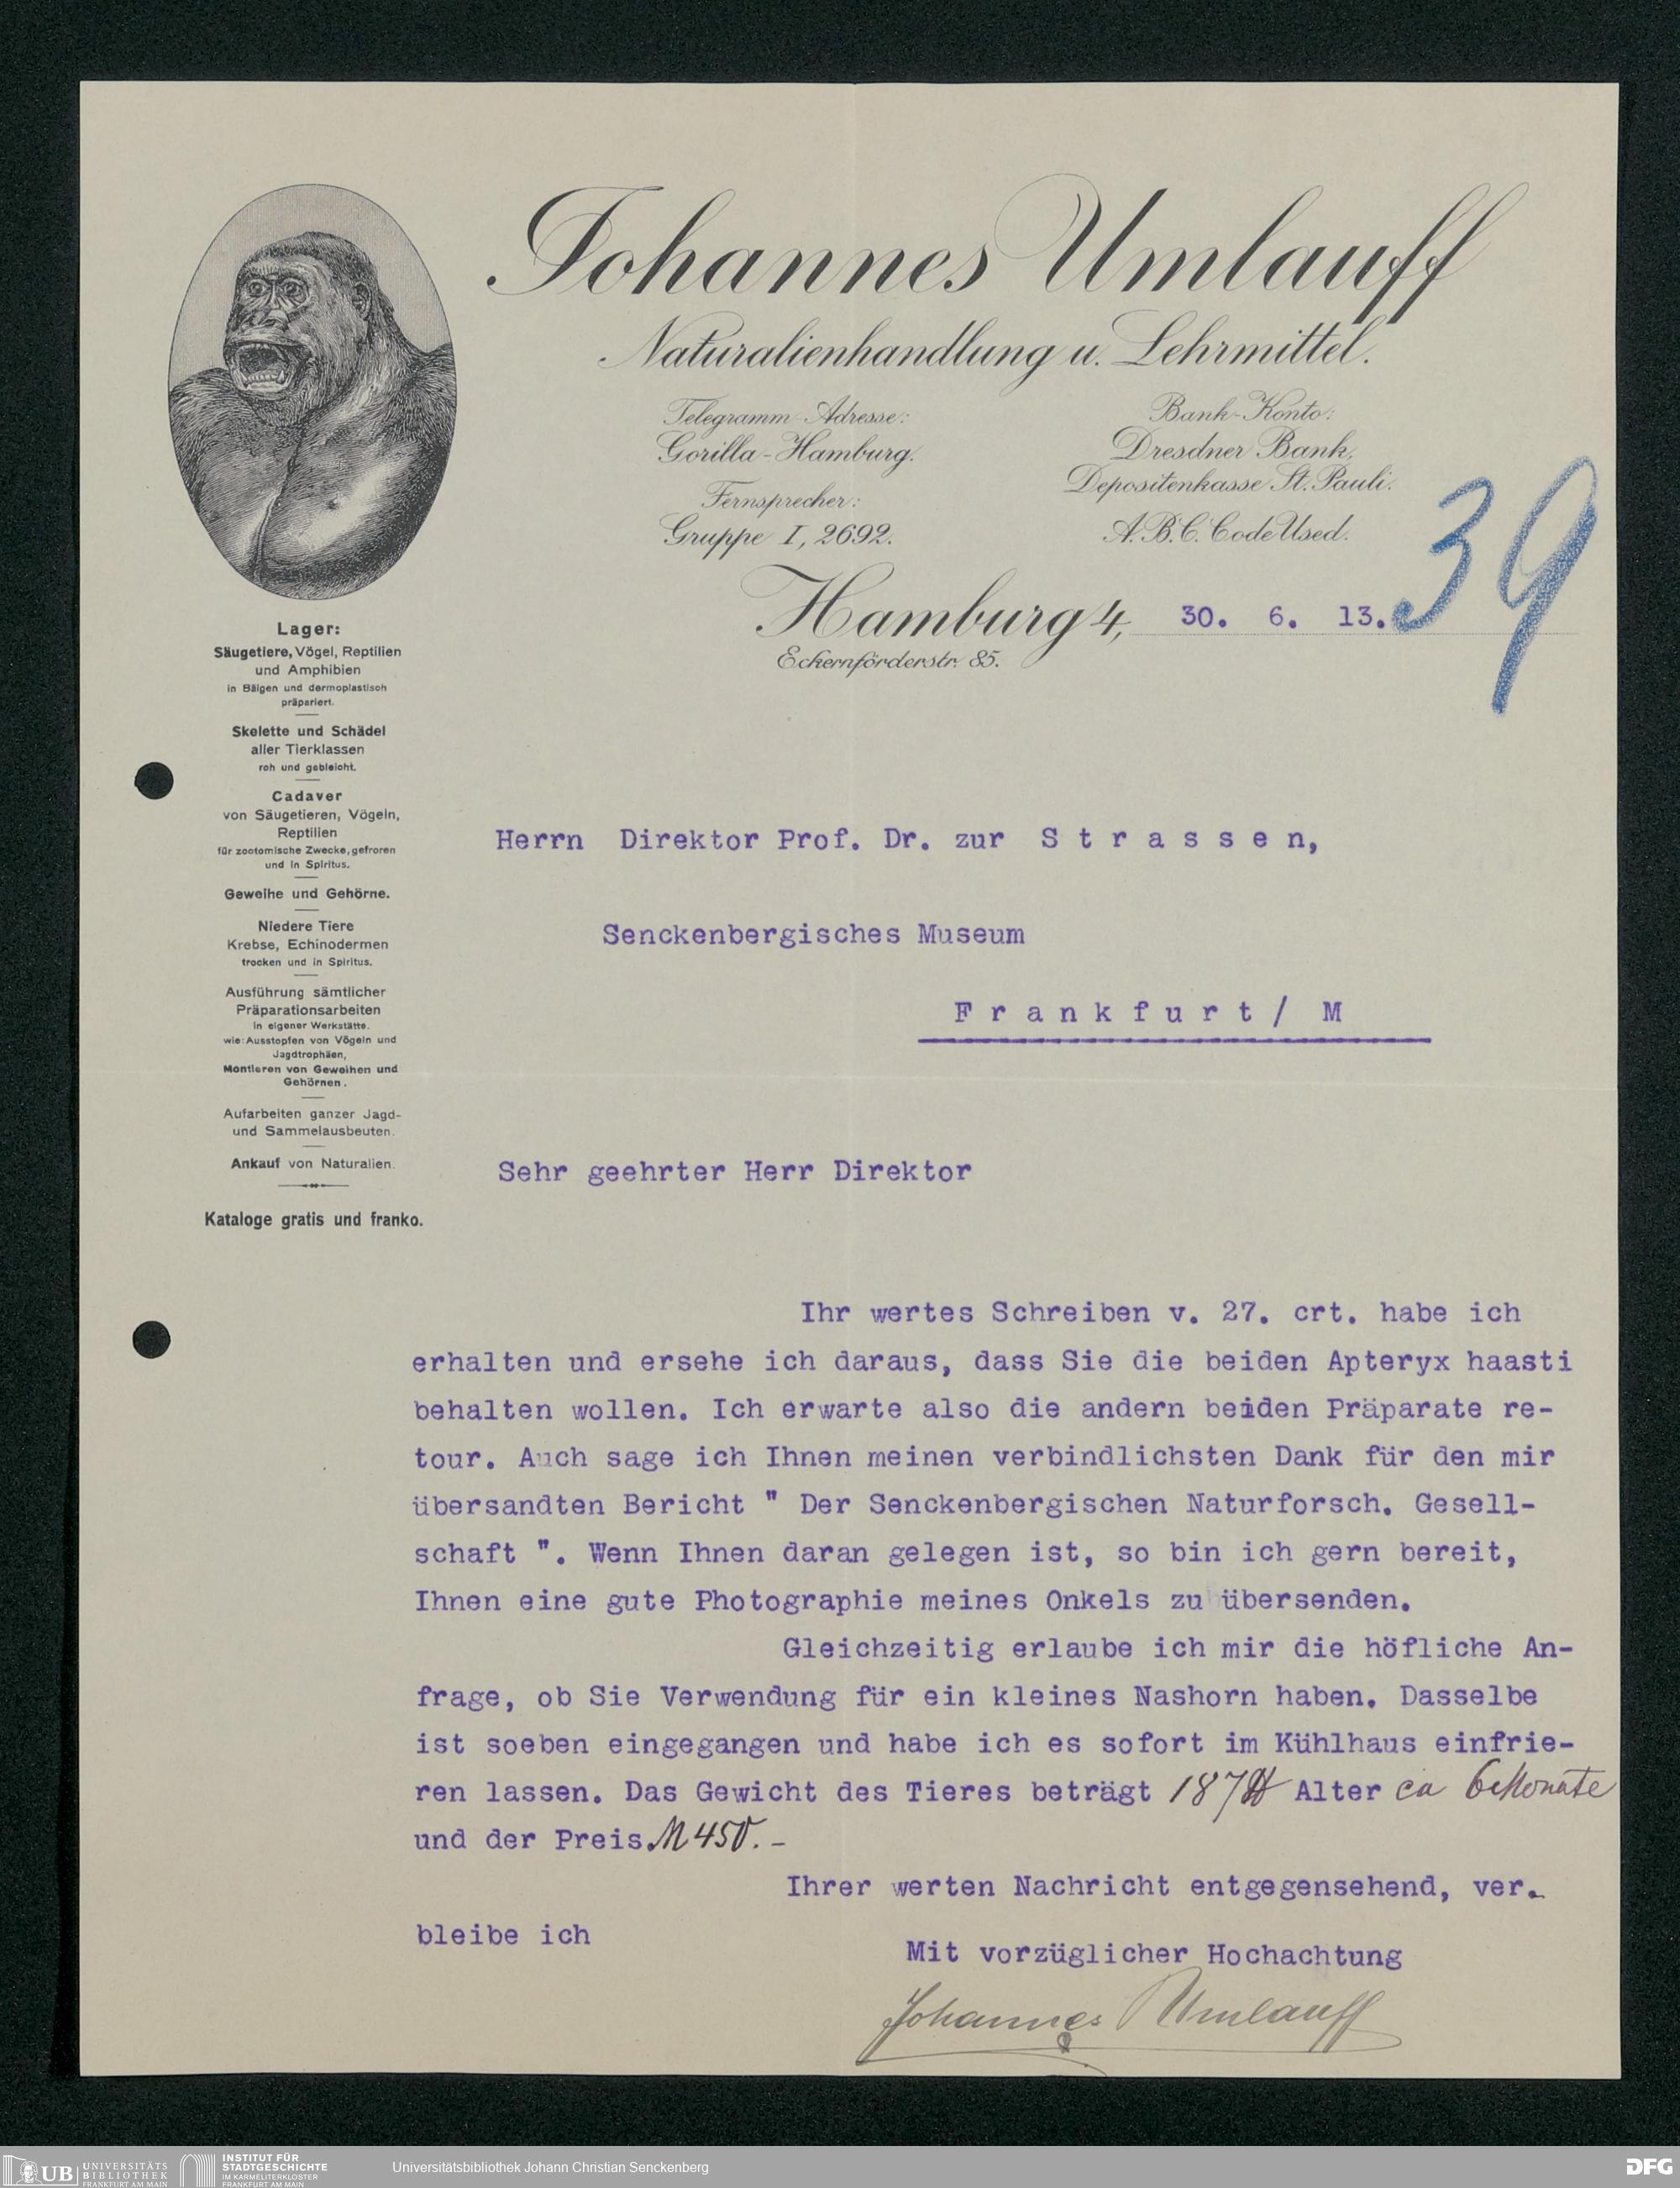 Johannes Umlauff
Naturalienhandlung u. Lehrmittel.
Telegramm-Adresse:
Gorilla-Hamburg.
Fernsprecher:
Gruppe I, 2692.
Bank-Konto:
Dresdner Bank,
Depositenkasse St. Pauli.
A.B.C. Code Used.
39
Hamburg 4, 30. 6. 13.
Eckernförderstr. 85.
Lager:
Säugetiere, Vögel, Reptilien
und Amphibien
in Bälgen und dermoplastisch
präpariert.
Skelette und Schädel
aller Tierklassen
roh und gebleicht.
Cadaver
von Säugetieren, Vögeln,
Reptilien
für zootomische Zwecke, gefroren
und in Spiritus.
Geweihe und Gehörne.
Niedere Tiere
Krebse, Echinodermen
trocken und in Spiritus.
Ausführung sämtlicher
Präparationsarbeiten
in eigener Werkstätte.
wie: Ausstopfen von Vögeln und
Jagdtrophäen,
Montieren von Geweihen und
Gehörnen.
Aufarbeiten ganzer Jagd-
und Sammelausbeuten.
Ankauf von Naturalien.
Kataloge gratis und franko.
Herrn Direktor Prof. Dr. zur S t r a s s e n,
Senckenbergisches Museum
F r a n k f u r t / M
Sehr geehrter Herr Direktor
Ihr wertes Schreiben v. 27. crt. habe ich
erhalten und ersehe ich daraus, dass Sie die beiden Apteryx haasti
behalten wollen. Ich erwarte also die andern beiden Präparate re-
tour. Auch sage ich Ihnen meinen verbindlichsten Dank für den mir
übersandten Bericht " Der Senckenbergischen Naturforsch. Gesell-
schaft ". Wenn Ihnen daran gelegen ist, so bin ich gern bereit,
Ihnen eine gute Photographie meines Onkels zu übersenden.
Gleichzeitig erlaube ich mir die höfliche An-
frage, ob Sie Verwendung für ein kleines Nashorn haben. Dasselbe
ist soeben eingegangen und habe ich es sofort im Kühlhaus einfrie-
ren lassen. Das Gewicht des Tieres beträgt 187 ℔ Alter ca 6 Monate
und der Preis. M 450.-
Ihrer werten Nachricht entgegensehend, ver-
bleibe ich
Mit vorzüglicher Hochachtung
Johannes Umlauff
UB UNIVERSITÄTS
BIBLIOTHEK
FRANKFURT AM MAIN
INSTITUT FÜR
STADTGESCHICHTE
IM KARMELITERKLOSTER
FRANKFURT AM MAIN
Universitätsbibliothek Johann Christian Senckenberg
DFG